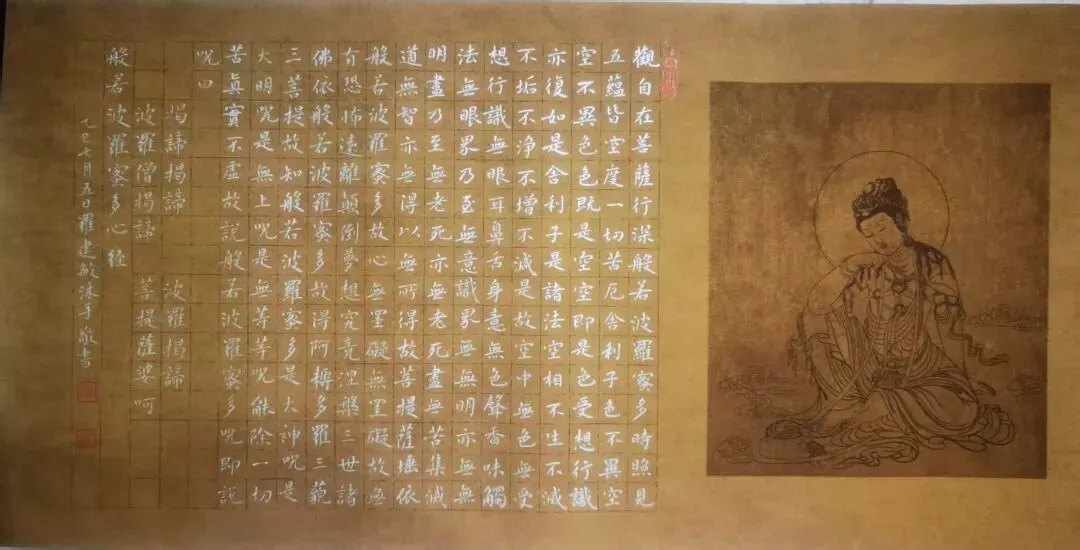 觀自在菩薩行深般若波羅蜜多時照見
五蘊皆空度一切苦厄舍利子色不異空
空不異色色既是空空即是色受想行識
亦復如是舍利子是諸法空相不生不滅
不垢不淨不增不減是故空中無色無受
想行識無眼耳鼻舌身意無色聲香味觸
法無眼界乃至無意識界無無明亦無無
明盡乃至無老死亦無老死盡無苦集滅
道無智亦無得以無所得故菩提薩埵依
般若波羅蜜多故心無罣礙無罣礙故無
有恐怖遠離顛倒夢想究竟涅槃三世諸
佛依般若波羅蜜多故得阿耨多羅三藐
三菩提故知般若波羅蜜多是大神咒是
大明咒是無上咒是無等等咒能除一切
苦真實不虛故說般若波羅蜜多咒即說
咒曰
揭諦揭諦 波羅揭諦
波羅僧揭諦 菩提薩婆呵
般若波羅蜜多心経
乙巳七月五日羅建敏沐手敬書